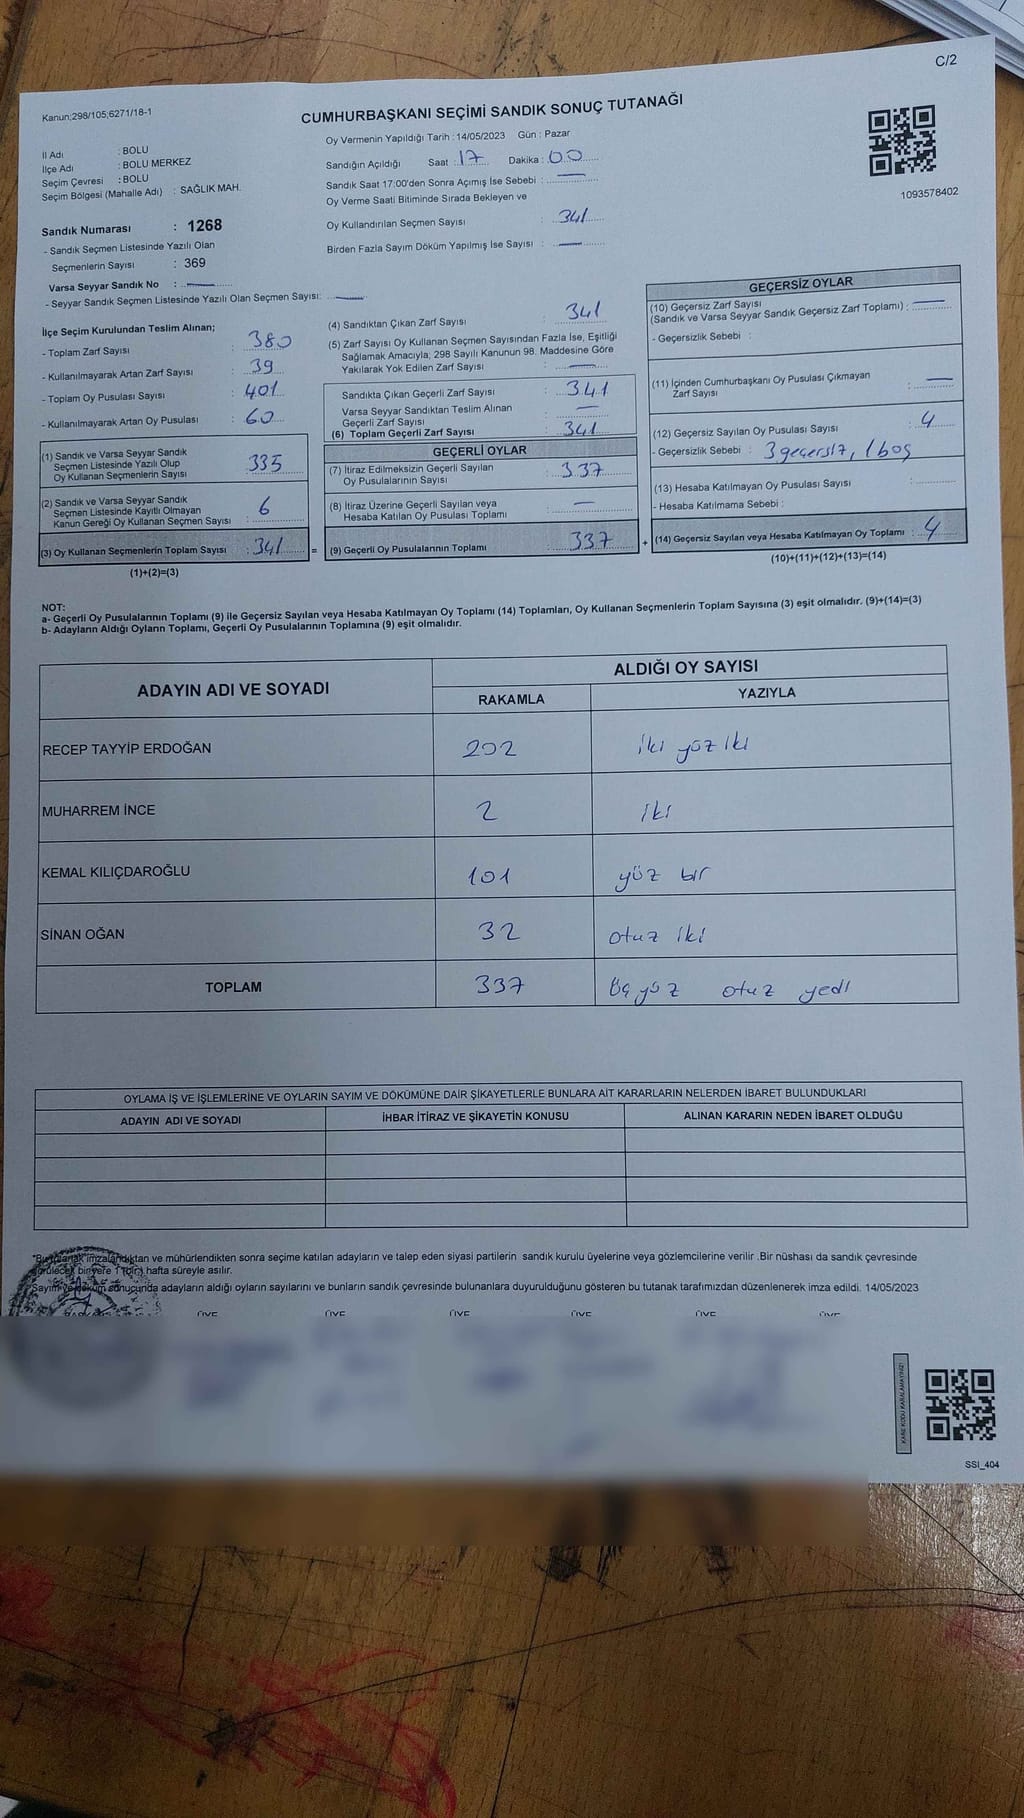 C/2
Kanun;298/105;6271/18-1
CUMHURBAŞKANI SEÇİMİ SANDIK SONUÇ TUTANAĞI
Oy Vermenin Yapıldığı Tarih : 14/05/2023 Gün : Pazar
İl Adı : BOLU
İlçe Adı : BOLU MERKEZ
Seçim Çevresi : BOLU
Seçim Bölgesi (Mahalle Adı) : SAĞLIK MAH.
Sandık Numarası : 1268
- Sandık Seçmen Listesinde Yazılı Olan
Seçmenlerin Sayısı : 369
Varsa Seyyar Sandık No :
- Seyyar Sandık Seçmen Listesinde Yazılı Olan Seçmen Sayısı:
Sandığın Açıldığı Saat : 17 Dakika : 00
Sandık Saat 17:00'den Sonra Açımış İse Sebebi :
Oy Verme Saati Bitiminde Sırada Bekleyen ve
Oy Kullandırılan Seçmen Sayısı : 341
Birden Fazla Sayım Döküm Yapılmış İse Sayısı :
1093578402
İlçe Seçim Kurulundan Teslim Alınan;
- Toplam Zarf Sayısı : 380
- Kullanılmayarak Artan Zarf Sayısı : 39
- Toplam Oy Pusulası Sayısı : 401
- Kullanılmayarak Artan Oy Pusulası : 60
(1) Sandık ve Varsa Seyyar Sandık
Seçmen Listesinde Yazılı Olup
Oy Kullanan Seçmenlerin Sayısı : 335
(2) Sandık ve Varsa Seyyar Sandık
Seçmen Listesinde Kayıtlı Olmayan
Kanun Gereği Oy Kullanan Seçmen Sayısı : 6
(3) Oy Kullanan Seçmenlerin Toplam Sayısı : 341 =
(1)+(2)=(3)
(4) Sandıktan Çıkan Zarf Sayısı : 341
(5) Zarf Sayısı Oy Kullanan Seçmen Sayısından Fazla İse, Eşitliği
Sağlamak Amacıyla; 298 Sayılı Kanunun 98. Maddesine Göre
Yakılarak Yok Edilen Zarf Sayısı :
Sandıkta Çıkan Geçerli Zarf Sayısı : 341
Varsa Seyyar Sandıktan Teslim Alınan
Geçerli Zarf Sayısı :
(6) Toplam Geçerli Zarf Sayısı : 341
GEÇERLİ OYLAR
(7) İtiraz Edilmeksizin Geçerli Sayılan
Oy Pusulalarının Sayısı : 337
(8) İtiraz Üzerine Geçerli Sayılan veya
Hesaba Katılan Oy Pusulası Toplamı :
(9) Geçerli Oy Pusulalarının Toplamı : 337 +
GEÇERSİZ OYLAR
(10) Geçersiz Zarf Sayısı
(Sandık ve Varsa Seyyar Sandık Geçersiz Zarf Toplamı) :
- Geçersizlik Sebebi :
(11) İçinden Cumhurbaşkanı Oy Pusulası Çıkmayan
Zarf Sayısı :
(12) Geçersiz Sayılan Oy Pusulası Sayısı : 4
- Geçersizlik Sebebi : 3 geçersiz, 1 boş
(13) Hesaba Katılmayan Oy Pusulası Sayısı :
- Hesaba Katılmama Sebebi :
(14) Geçersiz Sayılan veya Hesaba Katılmayan Oy Toplamı : 4
(10)+(11)+(12)+(13)=(14)
NOT:
a- Geçerli Oy Pusulalarının Toplamı (9) ile Geçersiz Sayılan veya Hesaba Katılmayan Oy Toplamı (14) Toplamları, Oy Kullanan Seçmenlerin Toplam Sayısına (3) eşit olmalıdır. (9)+(14)=(3)
b- Adayların Aldığı Oyların Toplamı, Geçerli Oy Pusulalarının Toplamına (9) eşit olmalıdır.
ADAYIN ADI VE SOYADI ALDIĞI OY SAYISI
RAKAMLA YAZIYLA
RECEP TAYYİP ERDOĞAN 202 iki yüz iki
MUHARREM İNCE 2 iki
KEMAL KILIÇDAROĞLU 101 yüz bir
SİNAN OĞAN 32 otuz iki
TOPLAM 337 Üç yüz otuz yedi
OYLAMA İŞ VE İŞLEMLERİNE VE OYLARIN SAYIM VE DÖKÜMÜNE DAİR ŞİKAYETLERLE BUNLARA AİT KARARLARIN NELERDEN İBARET BULUNDUKLARI
ADAYIN ADI VE SOYADI İHBAR İTİRAZ VE ŞİKAYETİN KONUSU ALINAN KARARIN NEDEN İBARET OLDUĞU
*Bu tutanak imzalandıktan ve mühürlendikten sonra seçime katılan adayların ve talep eden siyasi partilerin sandık kurulu üyelerine veya gözlemcilerine verilir .Bir nüshası da sandık çevresinde
görülecek bir yere 1 (bir) hafta süreyle asılır.
Sayım ve döküm sonucunda adayların aldığı oyların sayılarını ve bunların sandık çevresinde bulunanlara duyurulduğunu gösteren bu tutanak tarafımızdan düzenlenerek imza edildi. 14/05/2023
ÜYE ÜYE ÜYE ÜYE ÜYE ÜYE
KARE KODU KARALAMAYINIZ!
SSI_404